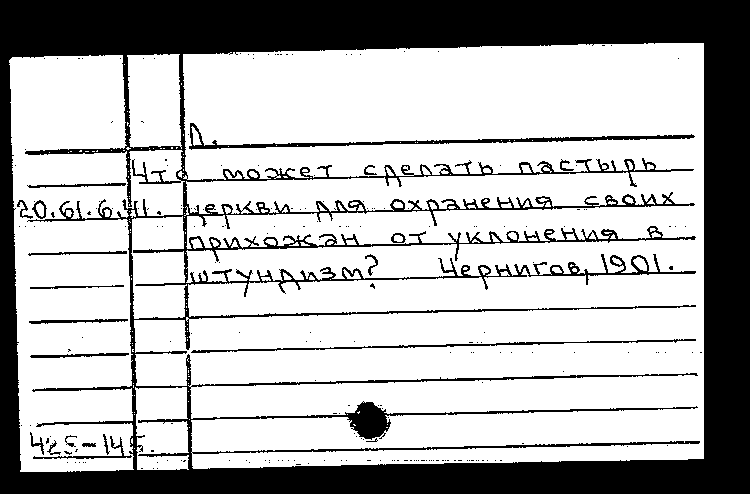 Л.
Что может сделать пастырь
20.61.6.41. церкви для охранения своих
прихожан от уклонения в
штундизм? Чернигов, 1901.
425-145.